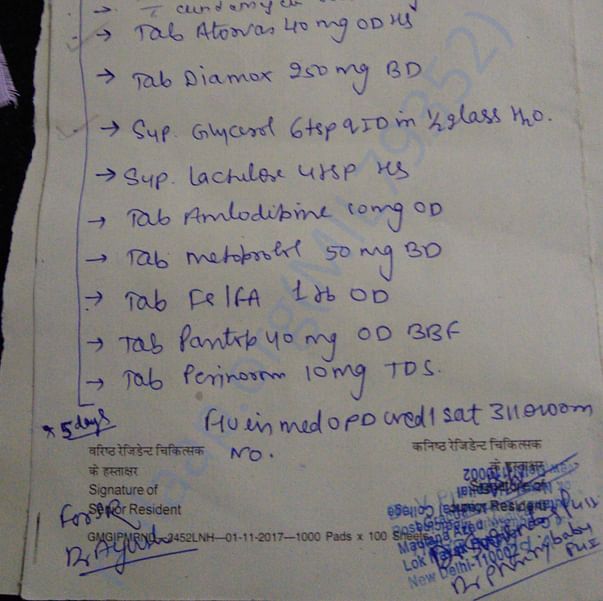 → Tab Atorvas 40 mg OD HS
→ Tab Diamox 250 mg BD
→ Syp. Glycerol 6tsp QID in ½ glass H2O.
→ Syp. Lactulose 4tsp HS
→ Tab Amlodipine 10mg OD
→ Tab metoprolol 50 mg BD
→ Tab Fe/FA 1 tb OD
→ Tab Pantop 40 mg OD BBF
→ Tab Perinorm 10mg TDS.
x 5 days
F/U in med OPD wed / sat 311 room
No.
वरिष्ठ रेजिडेन्ट चिकित्सक
के हस्ताक्षर
Signature of
Senior Resident
For SR
Dr Ayush
कनिष्ठ रेजिडेन्ट चिकित्सक
के हस्ताक्षर
Signature of
Junior Resident
GMGIPMRND—3452LNH—01-11-2017—1000 Pads x 100 Sheets
New Delhi-110002